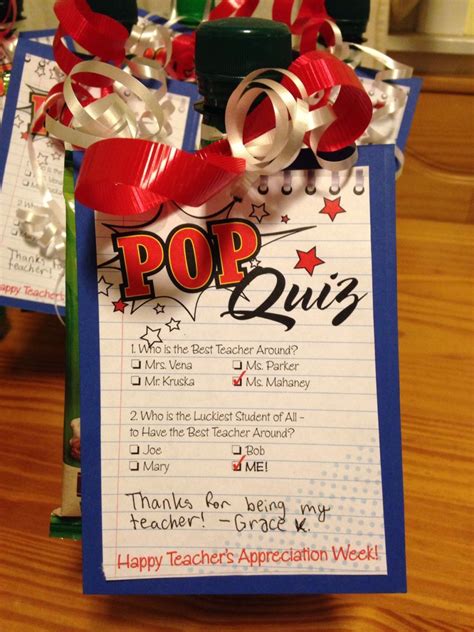 POP
Quiz
1. Who is the Best Teacher Around?
❑ Mrs. Vena ❑ Ms. Parker
❑ Mr. Kruska ☑ Ms. Mahaney
2. Who is the Luckiest Student of All –
to Have the Best Teacher Around?
❑ Joe ❑ Bob
❑ Mary ☑ ME!
Thanks for being my
teacher! -Grace K.
Happy Teacher's Appreciation Week!
Thanks
teacher!
Happy Teacher's